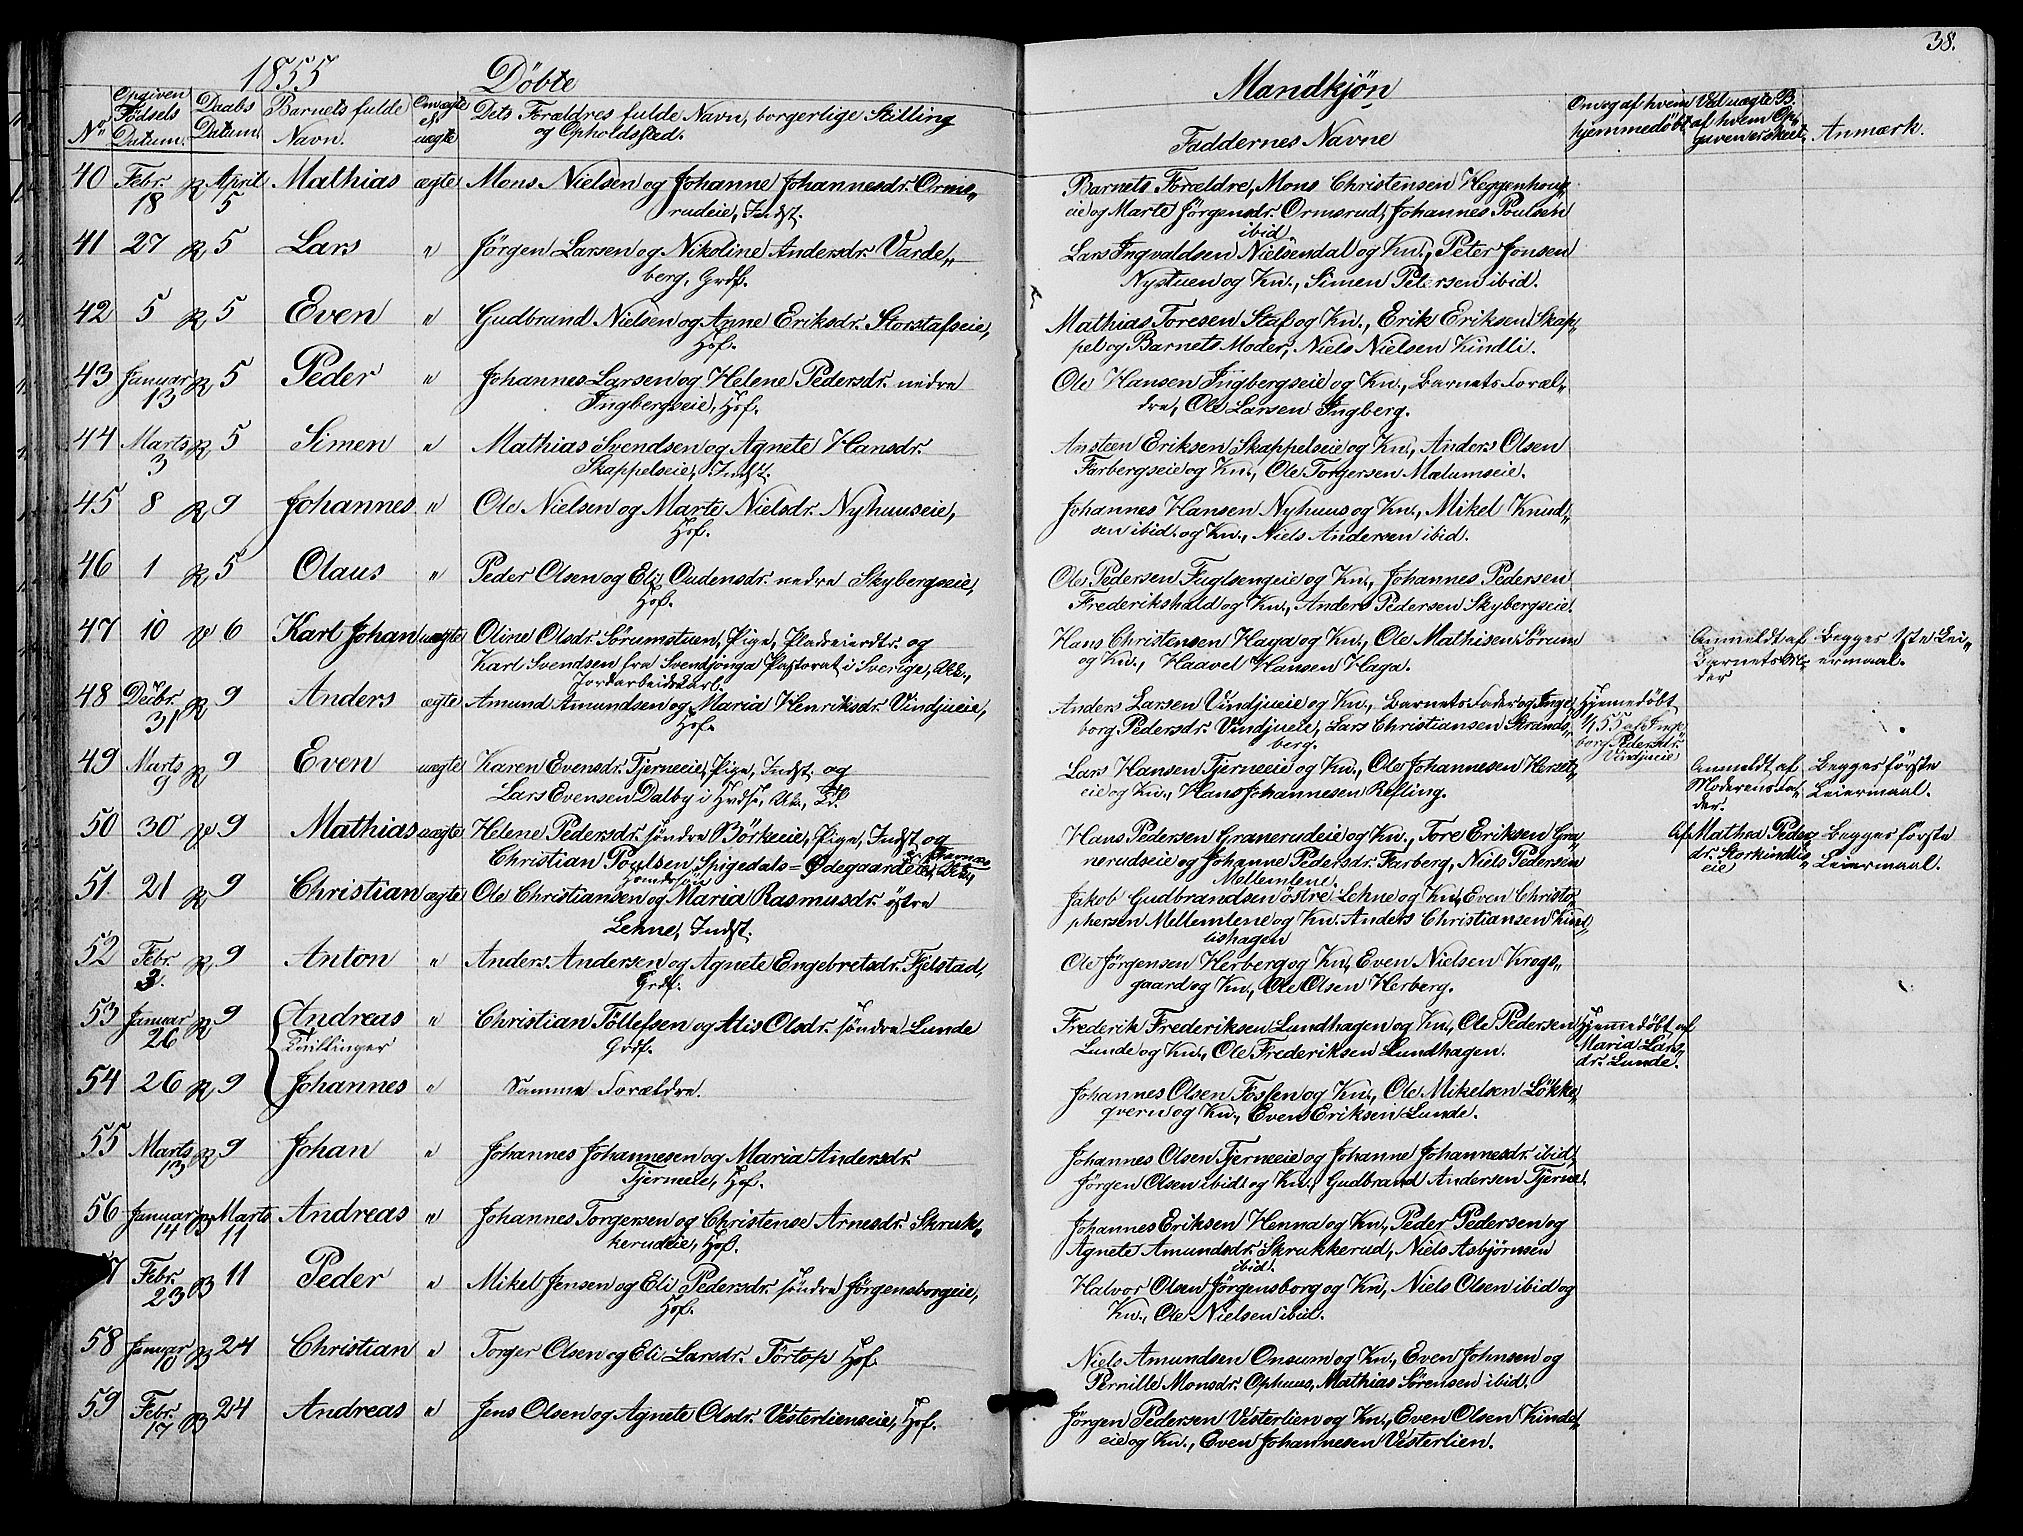 1855
Döbte
Mandkjön
38.
No
Opgiven Födsels Datum.
Daabs Datum.
Barnets fulde Navn.
Om ægte el. uægte
Dets Forældres fulde Navn, borgerlige Stilling og Opholdsted.
Faddernes Navne
Om og af hvem hjemmedöbt.
Ved uægte B. af hvem Opgiven er skeet.
Anmærk.
40 Febr. 18 R April 5 Mathias ægte Mons Nielsen og Johanne Johannesdr. Orms„
rudeie, Indst.
Barnets Forældre, Mons Christensen Heggenhou„
eie og Marte Jörgensdr. Ormsrud, Johannes Poulsen
ibid.
41 27 R 5 Lars " Jörgen Larsen og Nikoline Andersdr. Varde„
berg, Grdf.
Lars Ingvaldsen Nielsendal og Kn., Peter Jonsen
Nystuen og Kn., Simen Petersen ibid.
42 5 R 5 Even " Gudbrand Nielsen og Anne Eriksdr. Storstafseie,
Hof.
Mathias Toresen Staf og Kn., Erik Eriksen Skap„
pel og Barnets Moder, Niels Nielsen Kindli.
43 Januar 13 R 5 Peder " Johannes Larsen og Helene Pedersdr. nedre
Ingbergseie, Hof.
Ole Hansen Ingbergseie og Kn., Barnets Foræl„
dre, Ole Larsen Ingberg.
44 Marts 3 R 5 Simen " Mathias Svendsen og Agnete Hansdr.
Skappelseie, Indst.
Ansteen Eriksen Skappelseie og Kn., Anders Olsen
Farbergseie og Kn., Ole Torgersen Mælumseie.
45 8 R 9 Johannes " Ole Nielsen og Marte Nielsdr. Nyhuuseie,
Hof.
Johannes Hansen Nyhuus og Kn., Mikel Knud„
sen ibid. og Kn., Niels Andersen ibid.
46 1 R 5 Olaus " Peder Olsen og Eli Oudensdr. nedre Skybergseie,
Hof.
Ole Pedersen Fuglsengeie og Kn., Johannes Pedersen
Frederikshald og Kn., Anders Pedersen Skybergseie.
47 10 6 Karl Johan uægte Oline Olsdr. Sörumstuen, Pige, Pladseierdtr. og
Karl Svendsen fra Svendjönga Pastorat i Sverige, Uk.,
Jordarbeidskarl.
Hans Christensen Haga og Kn., Ole Mathisen Sörum
og Kn., Haavel Hansen Haga.
Anmeldt af
Barnets Mo„
der
Begges 1ste Lei„
ermaal.
48 Decbr. 31 R 9 Anders ægte Amund Amundsen og Maria Henriksdr. Vindjueie,
Hof.
Anders Larsen Vindjueie og Kn., Barnets Fader og Inge„
borg Pedersdr. Vindjueie, Lars Christiansen Strands„
berg.
Hjemmedöbt
1/1 55 af Inge„
borg Pedersdr.
Vindjueie
49 Marts 9 R 9 Even uægte Karen Evensdr. Tjerneeie, Pige, Indst. og
Lars Evensen Dalby i Hvdsø, Uk.,
Lars Hansen Tjerneeie og Kn., Ole Johannesen Herset„
eie og Kn., Hans Johannesen Refling.
Anmeldt af
Moderens Fa„
der.
Begges förste
Leiermaal.
50 30 9 Mathias uægte Helene Pedersdr. söndre Börkeeie, Pige, Indst. og
Christian Poulsen Spigedals=Ödegaardeie, Uk.,
Hans Pedersen Granerudeie og Kn., Tore Eriksen Gra„
nerudseie og Johanne Pedersdr. Farberg, Niels Pedersen
Mellemlene.
Af Mathea Peders
dr. Storkindlis„
eie
Begges förste
Leiermaal.
51 21 R 9 Christian ægte Ole Christiansen og Maria Rasmusdr. östre
Lehne, Indst.
Jakob Gudbrandsen östre Lehne og Kn., Even Christo„
phersen Mellemlene og Kn. Anders Christiansen Kind„
lishagen
52 Febr. 3. R 9 Anton " Anders Andersen og Agnete Engebretsdr. Fjelstad,
Grdf.
Ole Jörgensen Herberg og Kn., Even Nielsen Krogs„
gaard og Kn., Ole Olsen Herberg.
53 Januar 26 R 9 Andreas " Christian Tollefsen og Alis Olsdr. söndre Lunde
Tvillinger
Grdf.
Frederik Frederiksen Lundhagen og Kn., Ole Pedersen
Lunde og Kn., Ole Frederiksen Lundhagen.
Hjemmedöbt af
Maria Lars„
dr. Lunde.
54 26 R 9 Johannes " Samme Forældre.
Johannes Olsen Fossen og Kn., Ole Mikelsen Lökke„
qvern og Kn., Even Eriksen Lunde.
55 Marts 13 R 9 Johan " Johannes Johannesen og Maria Andersdr.
Tjerneeie, Hof.
Johannes Olsen Tjerneeie og Johanne Johannesdr. ibid,
Jörgen Olsen ibid. og Kn., Gudbrand Andersen Tjerne.
56 Januar 14 B Marts 11 Andreas " Johannes Torgersen og Christense Arnesdr. Skruk„
kerudeie, Hof.
Johannes Eriksen Henna og Kn., Peder Pedersen og
Agnete Amundsdr. Skrukkerud, Niels Asbjörnsen
ibid.
7 Febr. 23 B 11 Peder " Mikel Jensen og Eli Pedersdr. söndre Jörgensborgeie,
Hof.
Halvor Olsen Jörgensborg og Kn., Niels Olsen ibid og
Kn., Ole Nielsen ibid.
58 Januar 10 B 24 Christian " Torger Olsen og Eli Larsdr. Tortop Hof.
Niels Amundsen Onsum og Kn., Even Johnsen og
Pernille Monsdr. Ophuus, Mathias Sörensen ibid.
59 Febr. 17 B 24 Andreas " Jens Olsen og Agnete Olsdr. Vesterlienseie, Hof.
Jörgen Pedersen Vesterlien og Kn., Even Olsen Kinde„
eie og Kn., Even Johannesen Vesterlien.